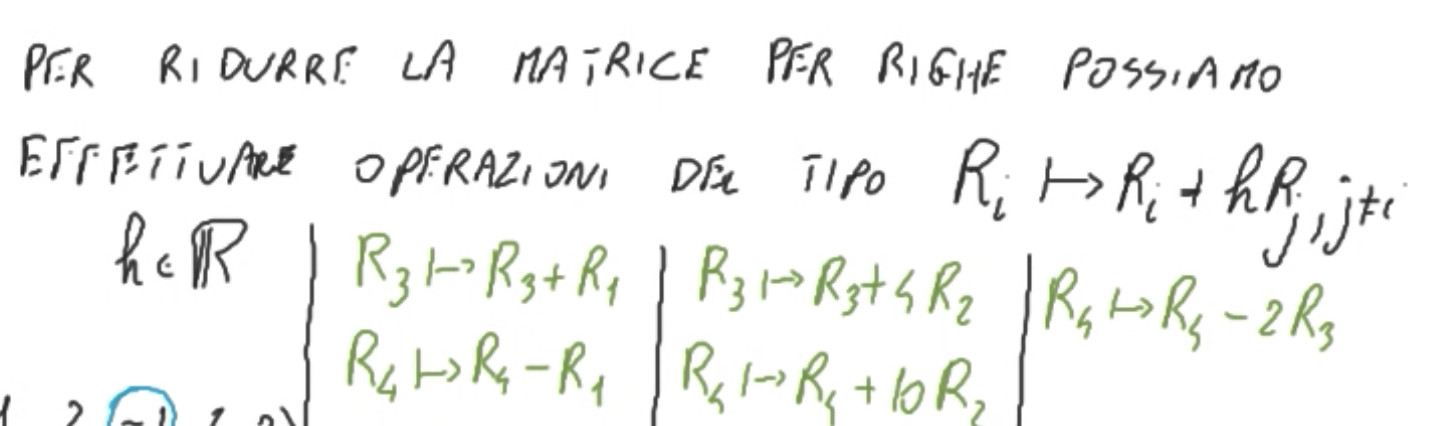 PER RIDURRE LA MATRICE PER RIGHE POSSIAMO
EFFETTUARE OPERAZIONI DEL TIPO R_i ↦ R_i + hR_j, j≠i
h∈ℝ | R_3 ↦ R_3 + R_1 | R_3 ↦ R_3 + 4R_2 | R_4 ↦ R_4 - 2R_3
R_4 ↦ R_4 - R_1 | R_4 ↦ R_4 + 10R_2
2 -1